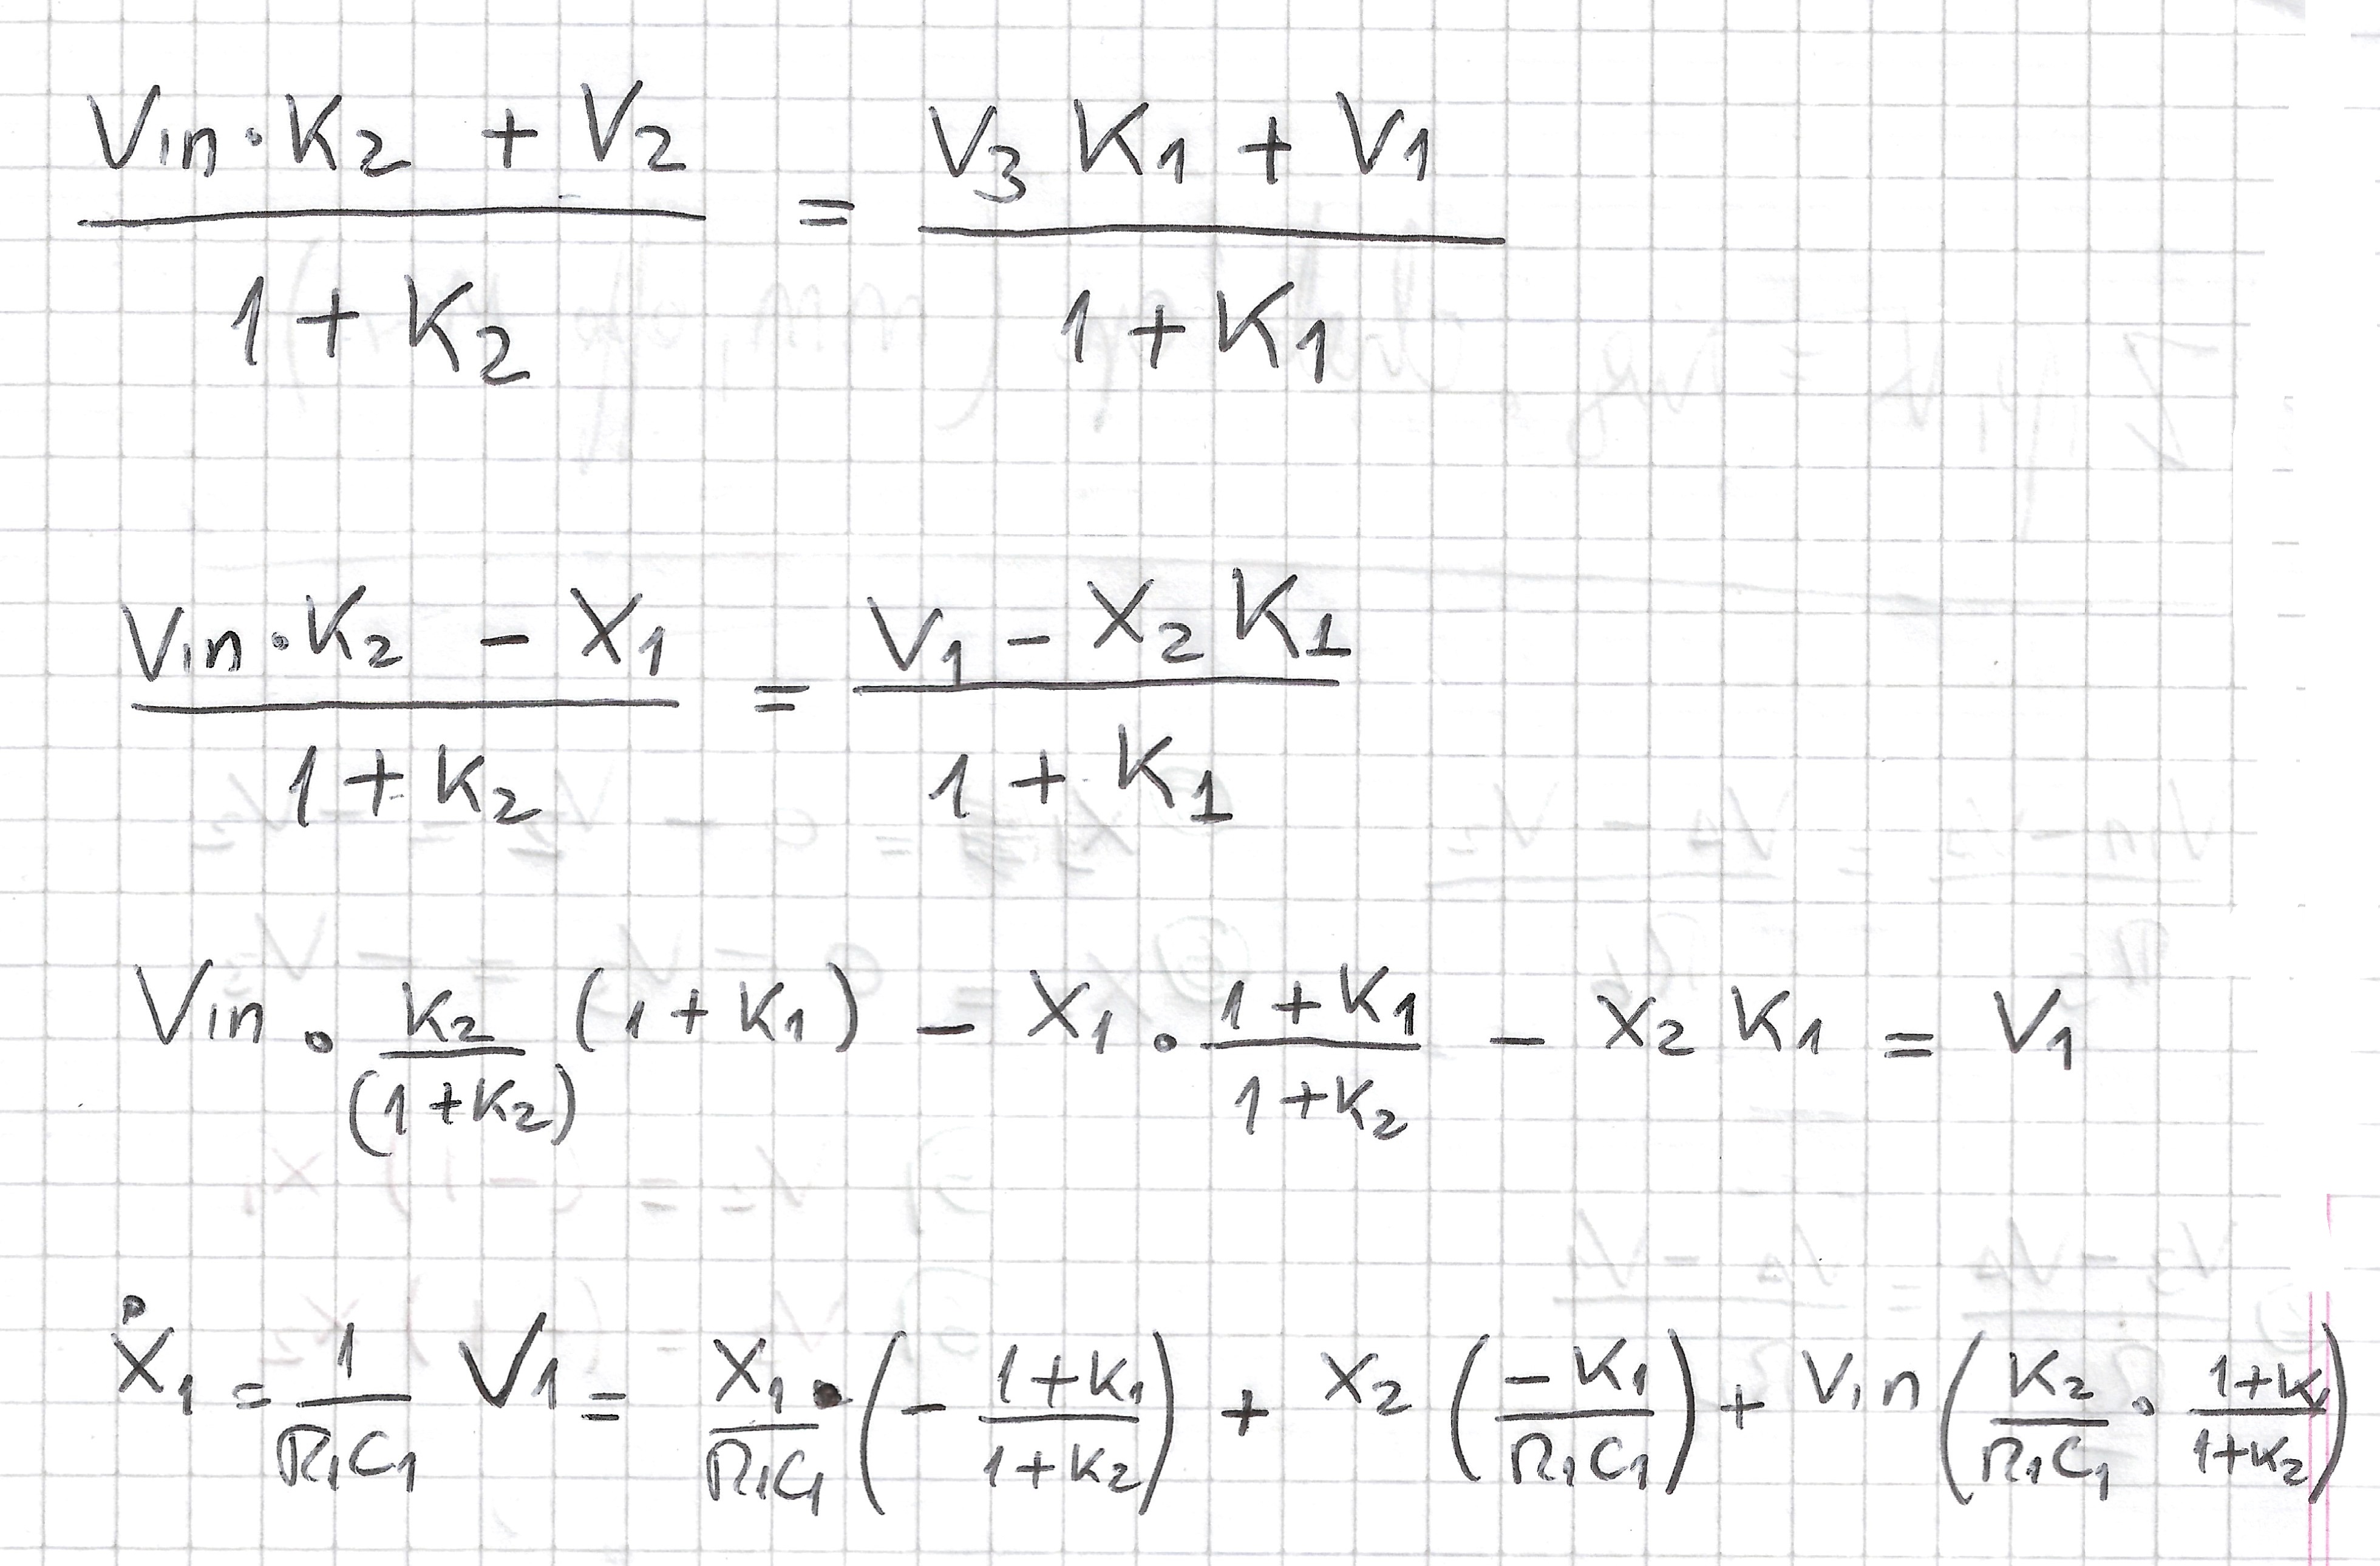 (Vin·K2 + V2)/(1+K2) = (V3 K1 + V1)/(1+K1)
(Vin·K2 - X1)/(1+K2) = (V1 - X2 K1)/(1+K1)
Vin · K2/(1+K2) (1+K1) - X1 · (1+K1)/(1+K2) - X2 K1 = V1
Ẋ1 = 1/(R1C1) V1 = X1/(R1C1) · (- (1+K1)/(1+K2)) + X2 (-K1/(R1C1)) + Vin (K2/(R1C1) · (1+K1)/(1+K2))